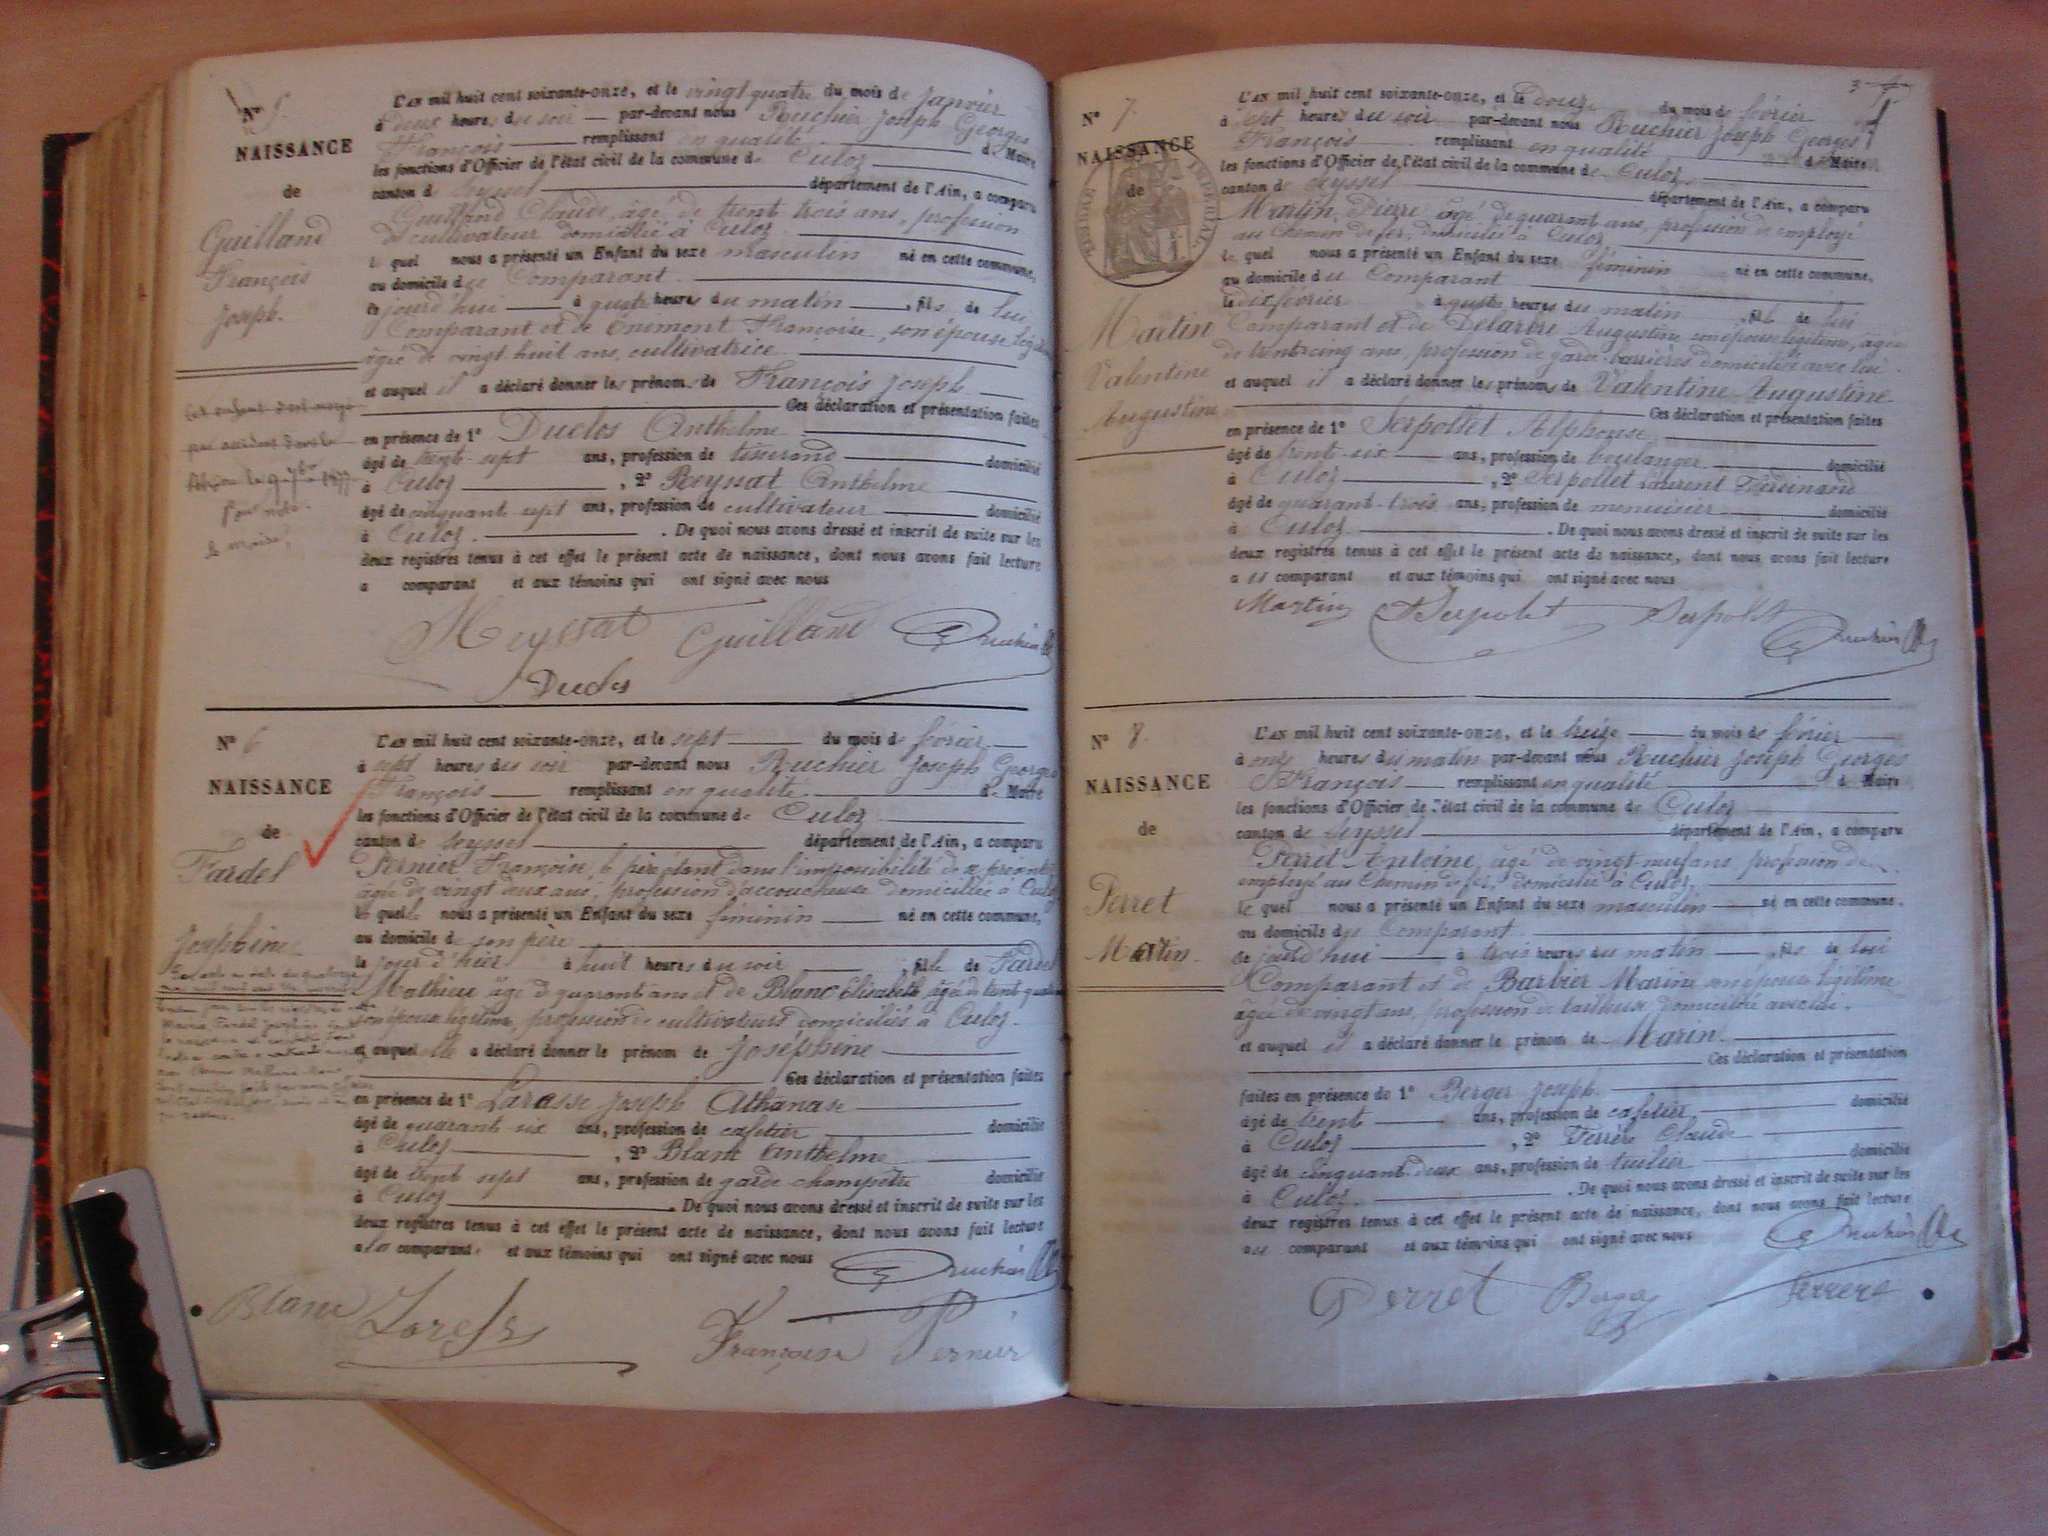 N° 5.
NAISSANCE
de
Guilland
François
Joseph.
L'AN mil huit cent soixante-onze, et le vingt quatre du mois de janvier
à deux heures du soir par-devant nous Ruchier Joseph Georges
François remplissant en qualité de Maire
les fonctions d'Officier de l'état civil de la commune de Culoz
canton de Seyssel département de l'Ain, a comparu
Guilland Claude, âgé de trent trois ans, profession
de cultivateur domicilié à Culoz
le quel nous a présenté un Enfant du sexe masculin né en cette commune,
au domicile du Comparant
jourd'hui à quatre heures du matin, fils de lui
Comparant et de Françoise, son épouse
âgée de vingt huit ans, cultivatrice
et auquel il a déclaré donner les prénoms de François Joseph
Ces déclaration et présentation faites
en présence de 1° Duclos Anthelme
âgé de trente-sept ans, profession de tisserand domicilié
à Culoz, 2° Reyssat Anthelme
âgé de cinquant sept ans, profession de cultivateur domicilié
à Culoz. De quoi nous avons dressé et inscrit de suite sur les
deux registres tenus à cet effet le présent acte de naissance, dont nous avons fait lecture
a comparant et aux témoins qui ont signé avec nous
Reyssat Guilland Ruchier
Duclos
N° 6
NAISSANCE
de
Fardel
Josephine
L'AN mil huit cent soixante-onze, et le sept du mois de février
à sept heures du soir par-devant nous Ruchier Joseph Georges
François remplissant en qualité de Maire
les fonctions d'Officier de l'état civil de la commune de Culoz
canton de Seyssel département de l'Ain, a comparu
Pernier Françoise, le père étant dans l'impossibilité de se présenter
âgée de vingt deux ans, profession d'accoucheuse domiciliée à Culoz
la quelle nous a présenté un Enfant du sexe féminin né en cette commune,
au domicile de son père
le jour d'hier à huit heures du soir, fille de Fardel
Mathieu âgé de quarant ans et de Blanc Elisabeth âgée de trent quatre
son épouse légitime, profession de cultivateurs domiciliés à Culoz
et auquel elle a déclaré donner le prénom de Joséphine
Ces déclaration et présentation faites
en présence de 1° Larasse Joseph Athanase
âgé de quarant six ans, profession de cafetier domicilié
à Culoz, 2° Blanc Anthelme
âgé de trent sept ans, profession de garde champêtre domicilié
à Culoz. De quoi nous avons dressé et inscrit de suite sur les
deux registres tenus à cet effet le présent acte de naissance, dont nous avons fait lecture
a la comparante et aux témoins qui ont signé avec nous
Ruchier
Blanc
Françoise Pernier
3
N° 7.
NAISSANCE
de
Martin
Valentine
Augustine
L'AN mil huit cent soixante-onze, et le douze du mois de février
à sept heures du soir par-devant nous Ruchier Joseph Georges
François remplissant en qualité de Maire
les fonctions d'Officier de l'état civil de la commune de Culoz
canton de Seyssel département de l'Ain, a comparu
Martin Pierre âgé de quarant ans, profession de employé
au Chemin de fer, domicilié à Culoz
le quel nous a présenté un Enfant du sexe féminin né en cette commune,
au domicile du Comparant
le dix février à quatre heures du matin, fille de lui
Comparant et de Delarbre Augustine son épouse légitime, âgée
de trent cinq ans, profession de garde barrières domiciliée avec lui.
et auquel il a déclaré donner les prénoms de Valentine Augustine
Ces déclaration et présentation faites
en présence de 1° Serpollet Alphonse
âgé de trent-six ans, profession de boulanger domicilié
à Culoz, 2° Serpollet Laurent Ferdinand
âgé de quarant-trois ans, profession de menuisier domicilié
à Culoz. De quoi nous avons dressé et inscrit de suite sur les
deux registres tenus à cet effet le présent acte de naissance, dont nous avons fait lecture
au comparant et aux témoins qui ont signé avec nous
Martin Serpolet Serpolet
Ruchier
N° 8.
NAISSANCE
de
Perret
Marin
L'AN mil huit cent soixante-onze, et le treize du mois de février
à onze heures du matin par-devant nous Ruchier Joseph Georges
François remplissant en qualité de Maire
les fonctions d'Officier de l'état civil de la commune de Culoz
canton de Seyssel département de l'Ain, a comparu
Perret Antoine, âgé de vingt neuf ans, profession de
employé au Chemin de fer, domicilié à Culoz
le quel nous a présenté un Enfant du sexe masculin né en cette commune,
au domicile du Comparant
ce jourd'hui à trois heures du matin, fils de lui
Comparant et de Barbier Marine son épouse légitime
âgée de vingt ans, profession de tailleuse domiciliée avec lui.
et auquel il a déclaré donner le prénom de Marin
Ces déclaration et présentation
faites en présence de 1° Berger Joseph
âgé de trent ans, profession de cafetier domicilié
à Culoz, 2° Ferrère Claude
âgé de cinquant deux ans, profession de tuilier domicilié
à Culoz. De quoi nous avons dressé et inscrit de suite sur les
deux registres tenus à cet effet le présent acte de naissance, dont nous avons fait lecture
au comparant et aux témoins qui ont signé avec nous
Ruchier
Perret Berger Ferrere